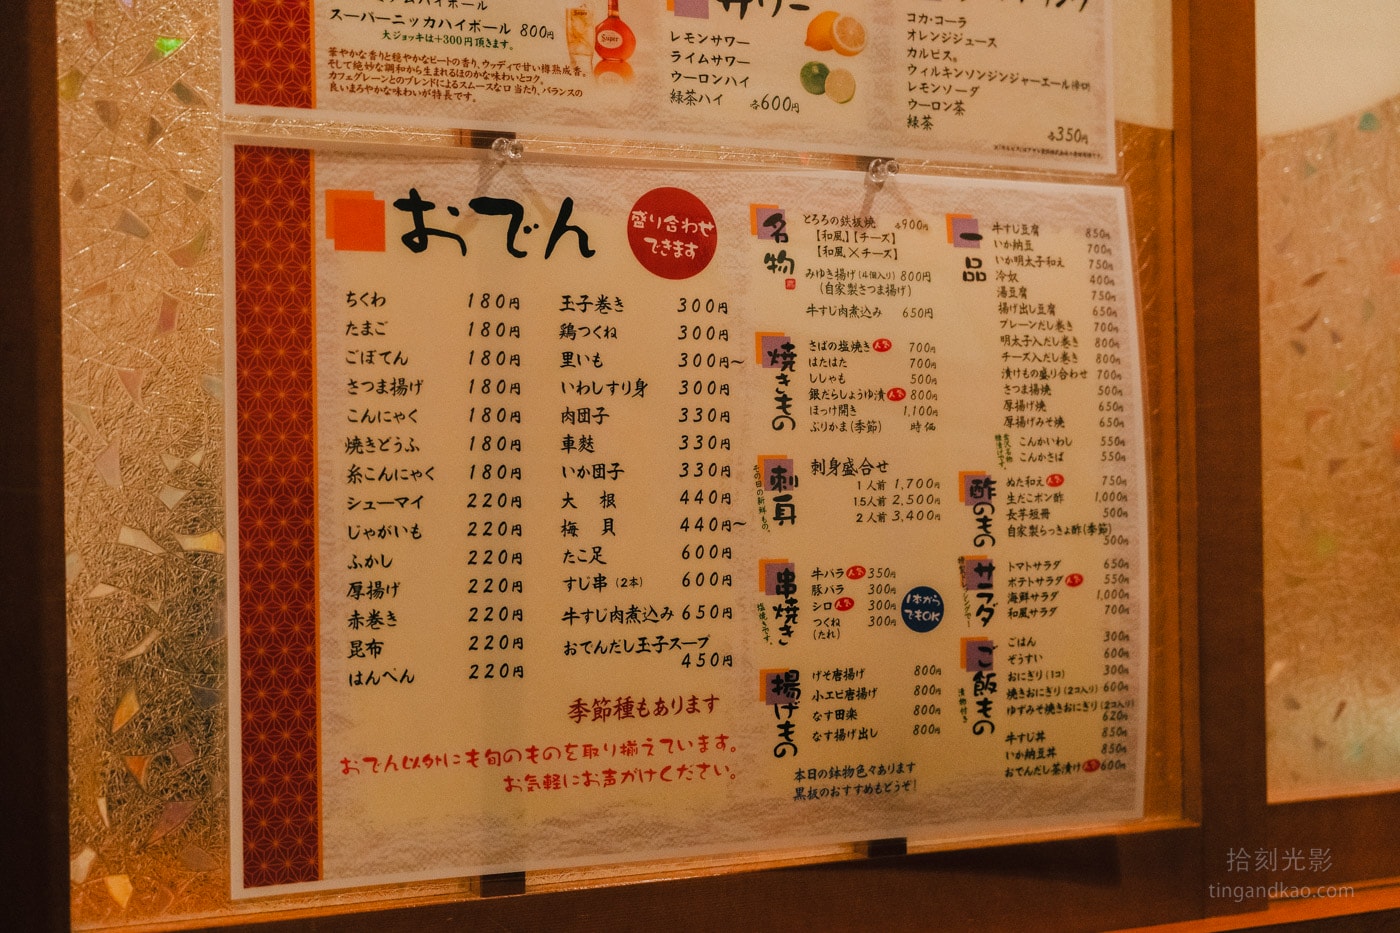 スーパーニッカハイボール 800円
大ジョッキは+300円頂きます。
華やかな香りと穏やかなピートの香り、ウッディで甘い樽熟成香。
そして絶妙な調和から生まれるほのかな味わいとコク。
カフェグレーンとのブレンドによるスムースな口当たり、バランスの
良いまろやかな味わいが特長です。
Super
サワー
レモンサワー
ライムサワー
ウーロンハイ
緑茶ハイ 各600円
コカ・コーラ
オレンジジュース
カルピス。
ウィルキンソンジンジャーエール
レモンソーダ
ウーロン茶
緑茶
各350円
おでん
盛り合わせ
できます
ちくわ 180円
たまご 180円
ごぼてん 180円
さつま揚げ 180円
こんにゃく 180円
焼きどうふ 180円
糸こんにゃく 180円
シューマイ 220円
じゃがいも 220円
ふかし 220円
厚揚げ 220円
赤巻き 220円
昆布 220円
はんぺん 220円
玉子巻き 300円
鶏つくね 300円
里いも 300円〜
いわしすり身 300円
肉団子 330円
車麩 330円
いか団子 330円
大根 440円
梅貝 440円〜
たこ足 600円
すじ串(2本) 600円
牛すじ肉煮込み 650円
おでんだし玉子スープ
450円
季節種もあります
おでん以外にも旬のものを取り揃えています。
お気軽にお声がけください。
名物
とろろの鉄板焼 各900円
【和風】【チーズ】
【和風×チーズ】
みゆき揚げ(4個入り) 800円
(自家製さつま揚げ)
牛すじ肉煮込み 650円
焼きもの
さばの塩焼き 人気 700円
はたはた 700円
ししゃも 500円
銀だらしょうゆ漬 人気 800円
ほっけ開き 1,100円
ぶりかま(季節) 時価
刺身
その日の新鮮もの。
刺身盛合せ
1人前 1,700円
1.5人前 2,500円
2人前 3,400円
串焼き
塩焼きです。
牛バラ 人気 350円
豚バラ 300円
シロ 人気 300円
つくね 300円
(たれ)
1本から
でもOK
揚げもの
げそ唐揚げ 800円
小エビ唐揚げ 800円
なす田楽 800円
なす揚げ出し 800円
本日の鉢物色々あります
黒板のおすすめもどうぞ!
一品
牛すじ豆腐 850円
いか納豆 700円
いか明太子和え 750円
冷奴 400円
湯豆腐 750円
揚げ出し豆腐 650円
プレーンだし巻き 700円
明太子入だし巻き 800円
チーズ入だし巻き 800円
漬けもの盛り合わせ 700円
さつま揚焼 500円
厚揚げ焼 650円
厚揚げみそ焼 650円
こんかいわし 550円
こんかさば 550円
酢のもの
ぬた和え 人気 750円
生だこポン酢 1,000円
長芋短冊 500円
自家製らっきょ酢(季節)
500円
サラダ
トマトサラダ 650円
ポテトサラダ 人気 550円
海鮮サラダ 1,000円
和風サラダ 700円
ご飯もの
漬物付き
ごはん 300円
ぞうすい 600円
おにぎり(1コ) 300円
焼きおにぎり(2コ入り) 600円
ゆずみそ焼きおにぎり(2コ入り)
620円
牛すじ丼 850円
いか納豆丼 850円
おでんだし茶漬け 人気 600円
拾刻光影
tingandkao.com